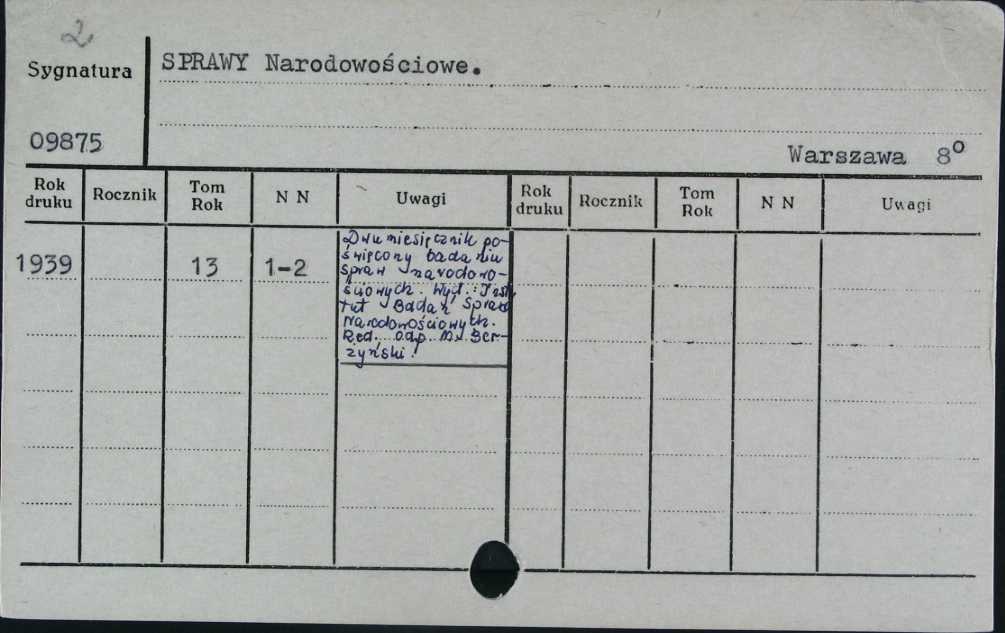 2
Sygnatura
SPRAWY Narodowościowe.
09875
Warszawa 8°
Rok druku Rocznik Tom Rok N N Uwagi Rok druku Rocznik Tom Rok N N Uwagi
1939 13 1-2
Dwumiesięcznik po-
święcony badaniu
spraw narodowo-
ściowych. Wyd.: Insty
tut Badań Spraw
Narodowościowych.
Red. odp.
żyński.